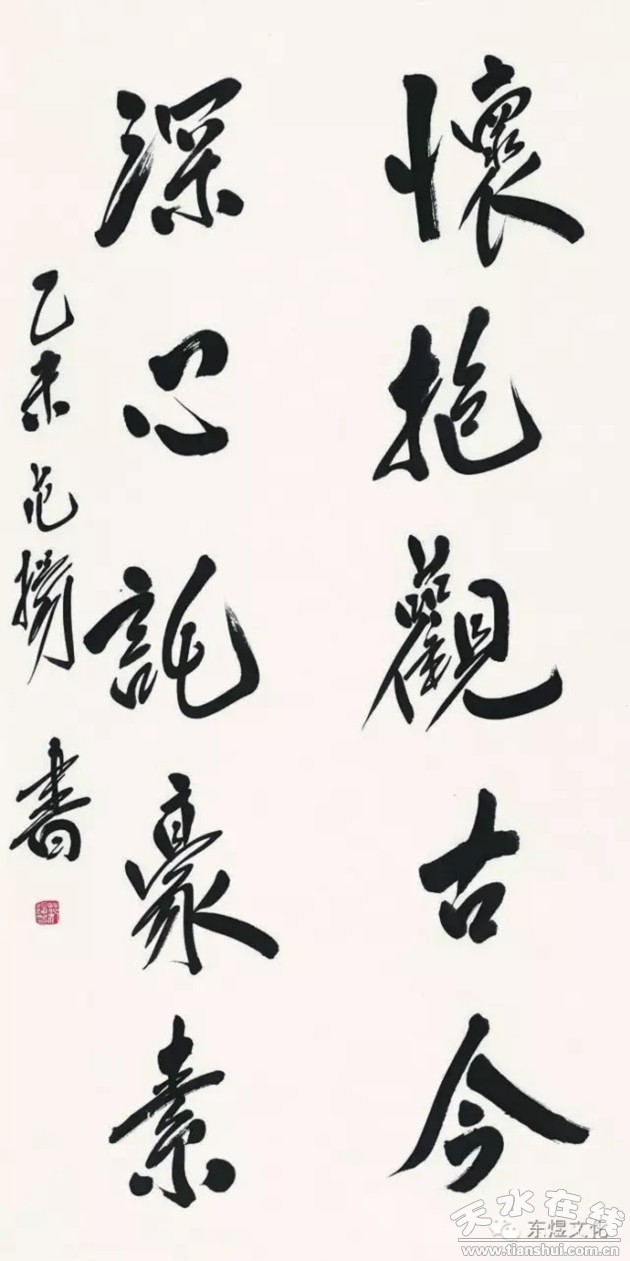 懷抱觀古今
深心託豪素
乙未范扬書
东煜文化
天水在线
www.tianshui.com.cn